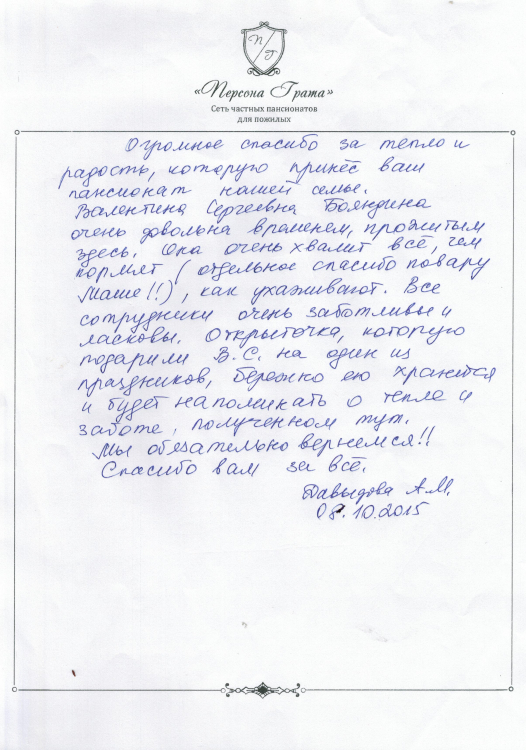 П
Г
«Персона Грата»
Сеть частных пансионатов
для пожилых
Огромное спасибо за тепло и
радость, которую принёс ваш
пансионат нашей семье.
Валентина Сергеевна Бояндина
очень довольна временем, прожитым
здесь. Она очень хвалит всё, чем
кормят (отдельное спасибо повару
Маше!!), как ухаживают. Все
сотрудники очень заботливые и
ласковы. Открыточка, которую
подарили В.С. на один из
праздников, бережно ею хранится
и будет напоминать о тепле и
заботе, полученном тут.
Мы обязательно вернемся!!
Спасибо вам за всё.
Давыдова А.М.
08.10.2015